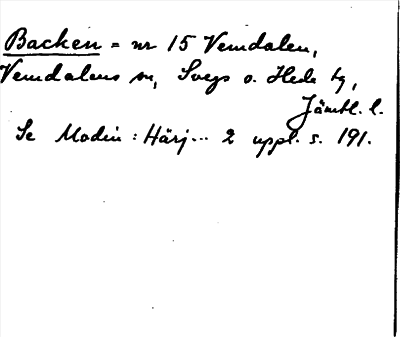 Backen = nr 15 Vemdalen,
Vemdalens sn, Svegs o. Hede tg,
Jämtl. l.
Se Modin: Härj... 2 uppl. s. 191.